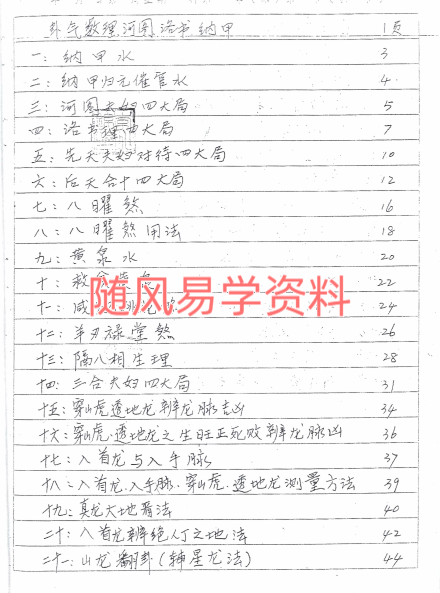 卦气数理河图洛书纳甲 1页
一：纳甲水 3
二：纳甲归元催官水 4
三：河图夫妇四大局 5
四：洛书 四大局 7
五：先天夫妇对待四大局 10
六：后天合十四大局 12
七：八曜煞 16
八：八曜煞用法 18
九：黄泉水 20
十：救 22
随风易学资料
十一：咸 24
十二：羊刃禄堂煞 26
十三：隔八相生理 28
十四：三合夫妇四大局 31
十五：穿山虎透地龙辨龙脉吉凶 34
十六：穿山虎.透地龙之生旺正死败辨龙脉凶 36
十七：入首龙与入手脉 37
十八：入首龙.入手脉.穿山虎.透地龙测量方法 39
十九：真龙大地看法 40
二十：入首龙辨绝人丁之地法 42
二十一：山龙翻卦（辅星龙法） 44